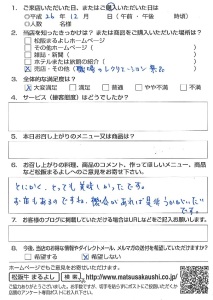 1. ご来店いただいた日、またはご購入いただいた日は
○平成 26 年 12 月　日 ( 午前・午後　時頃)
○人数　名様
2. 当店を知ったきっかけは？ または商品をご購入いただいた場所は？
□ 松阪まるよしホームページ
□ その他ホームページ (　)
□ 雑誌・新聞 (　)
□ ホテルまたは旅館の紹介 (　)
売店・その他 ( 職場のレクリエーション景品 )
3. 全体的な満足度は？
大変満足 □ 満足 □ 普通 □ やや不満 □ 不満
4. サービス（接客態度）はどうでしたか？
5. 本日お召し上がりのメニュー又は商品は？
6. お召し上がりの料理、商品のコメント、作ってほしいメニュー、商品など松阪まるよしへのご意見をお寄せください。
とにかく、とっても美味しかったです。
お店もあるのですね。機会があれば是非うかがいたいです
7. お客様のブログに掲載していただける場合はURLなどをご記入お願いします。
8. 今後、当店のお得な情報やダイレクトメール、メルマガの送付を希望していただけますか？
希望する □ 希望しない
ホームページでもご意見をお寄せください。
松阪牛 まるよし http://www.matsusakaushi.co.jp
ご協力ありがとうございました。お手数ですが、切手を貼らずにポストにご投函いただくか店内のアンケート専用ポストにお入れください。